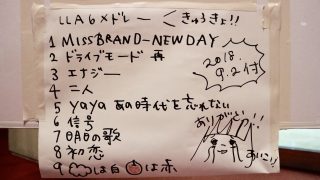 LLA6メドレー きゅうきょ!!
1 MISS BRAND-NEW DAY
2 ドライブモード 再
3 エナジー
4 二人
5 yaya あの時代を忘れない
6 信号
7 明日の歌
8 初恋
9 は白 は赤
2018.
9.2付
ありがとう